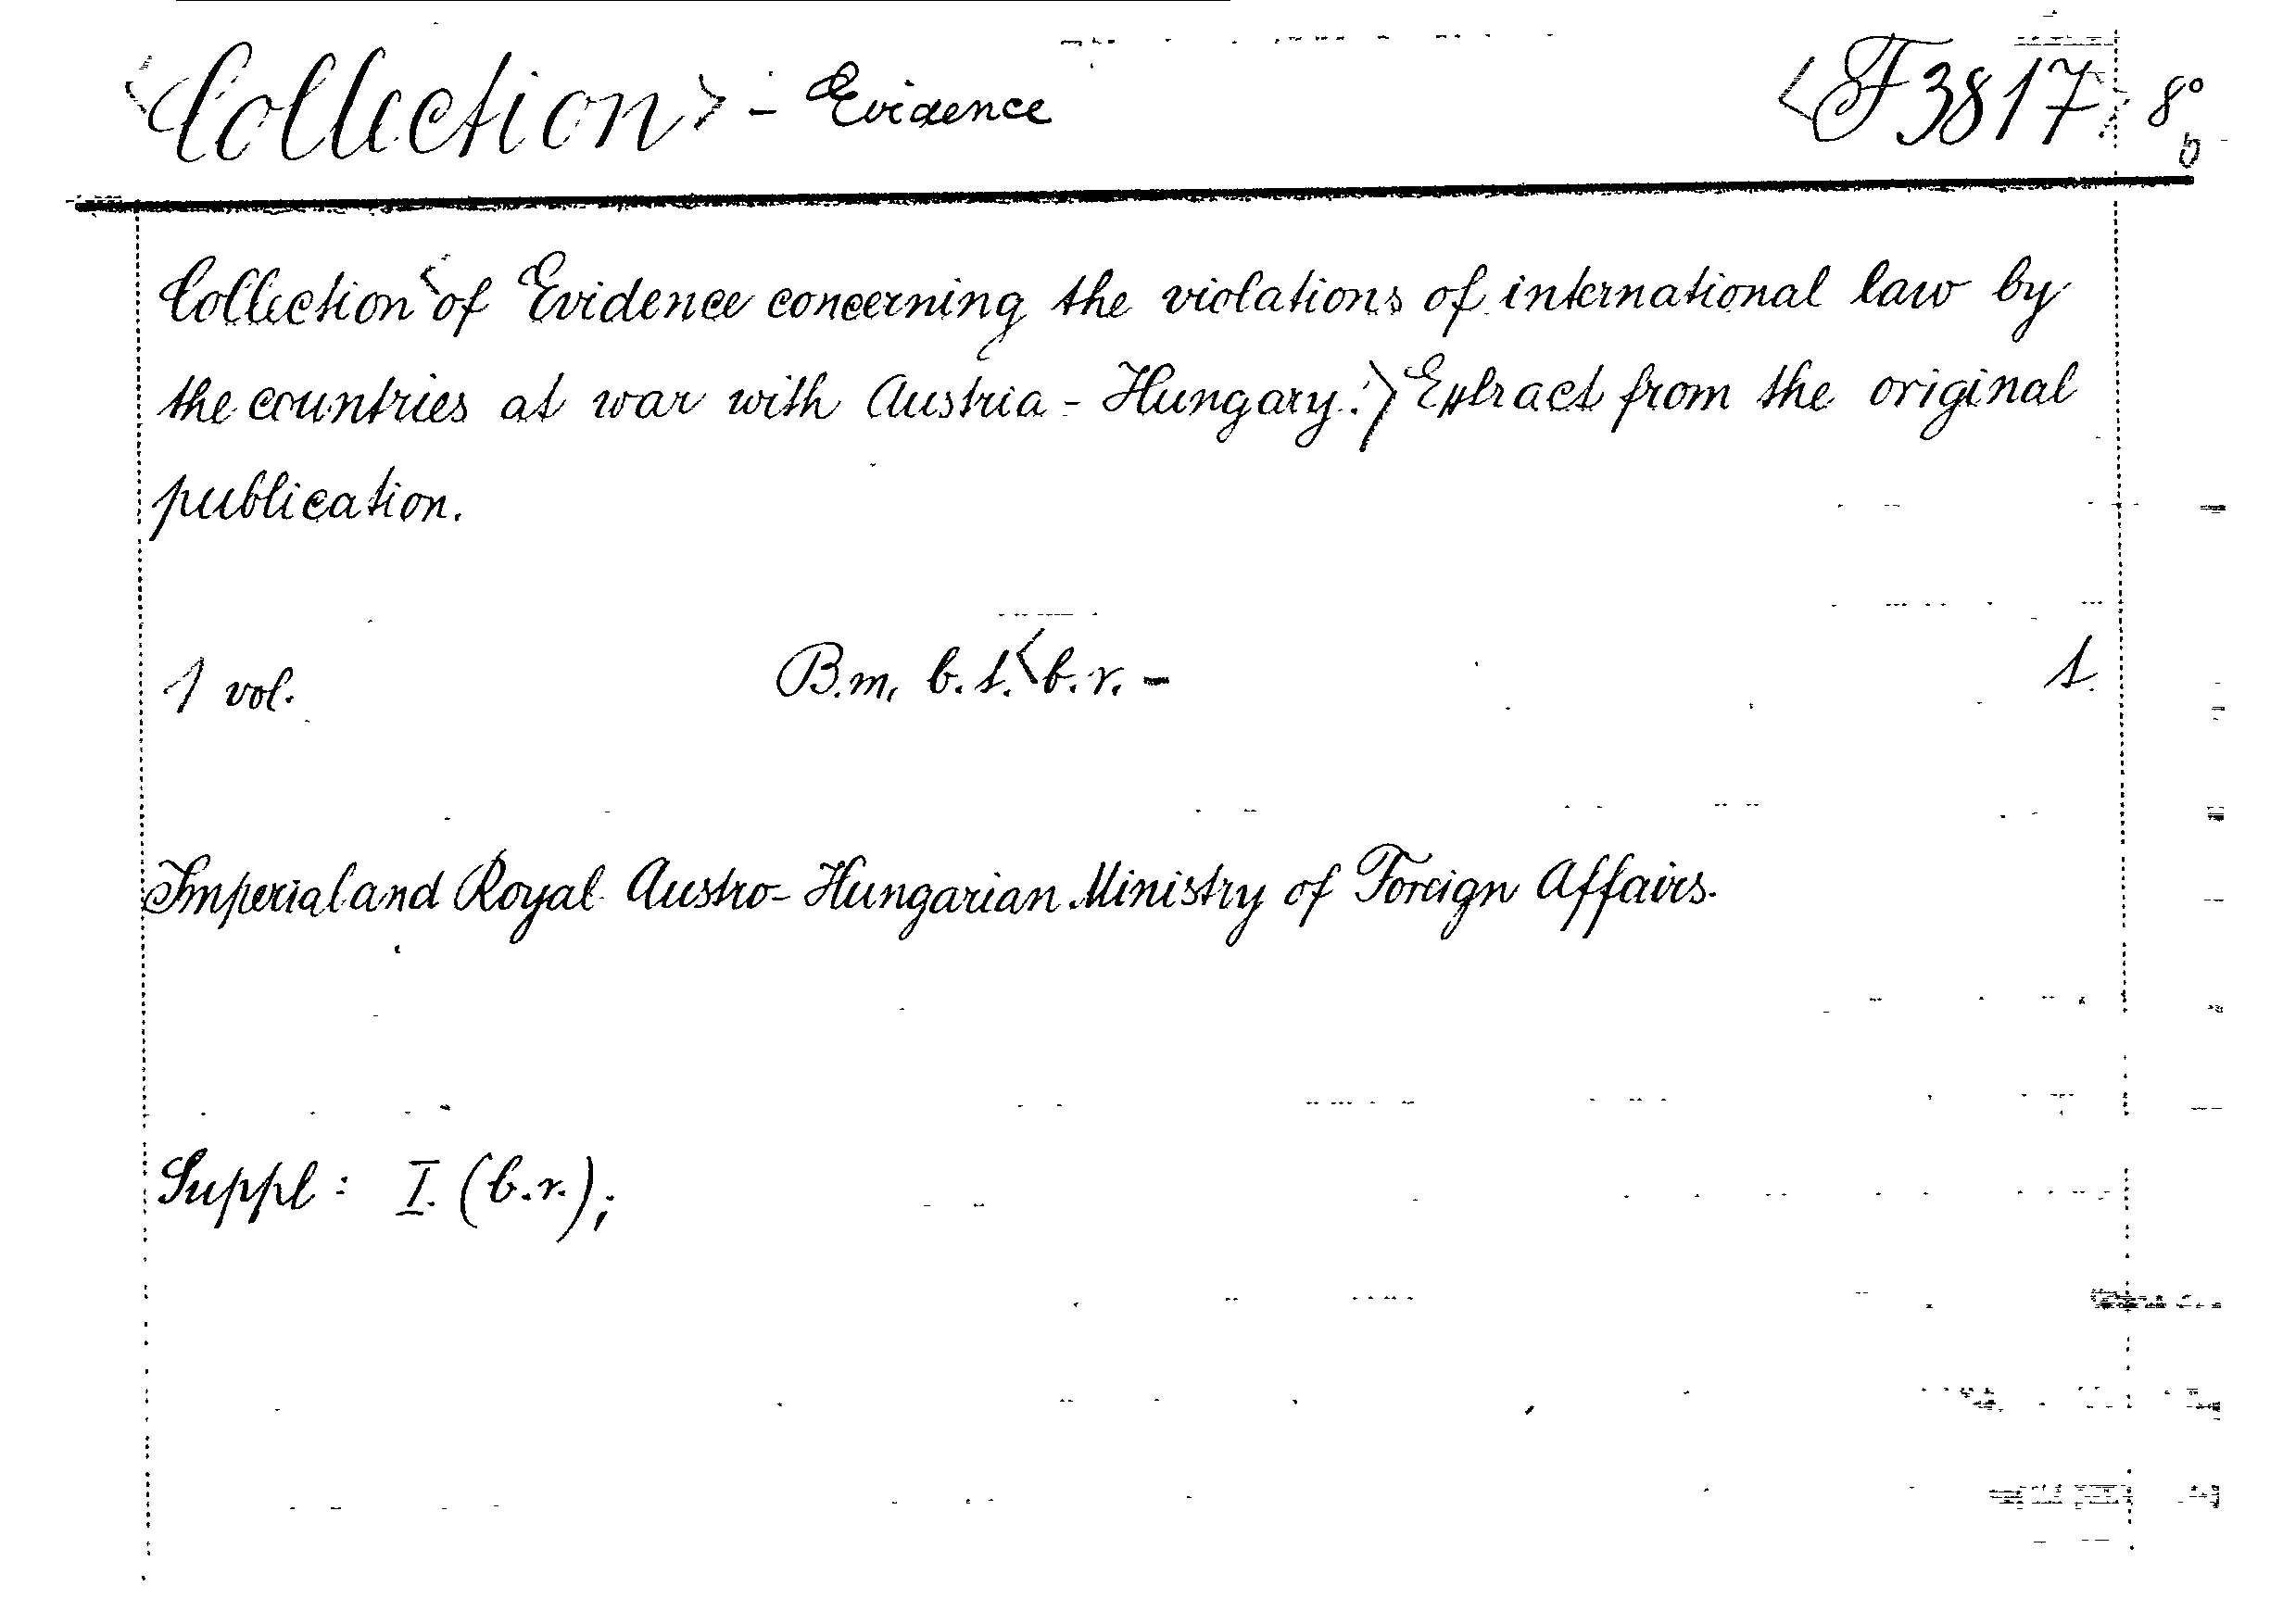 <Collection> - Evidence <F3817> 8° b
Collection <of Evidence concerning the violations of international law by
the countries at war with Austria-Hungary.> Extract from the original
publication.
1 vol. B.m. b.s. <b.r. - 1.
Imperial and Royal Austro-Hungarian Ministry of Foreign Affairs.
Suppl: I. (b.r.);